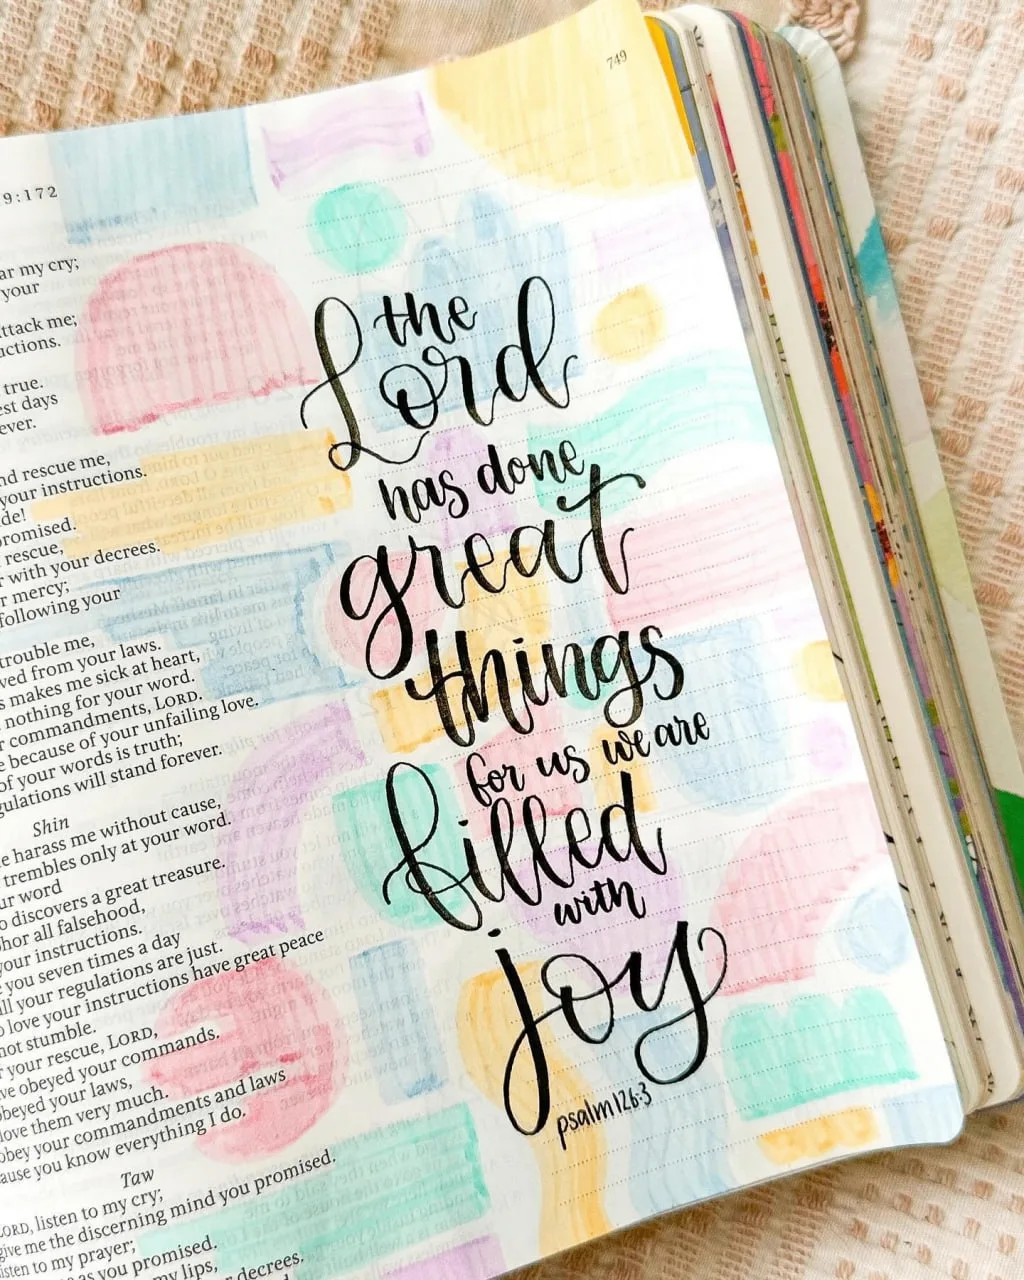 749
9:172
ar my cry;
your
ttack me;
uctions.
true.
est days
ever.
nd rescue me,
your instructions.
de!
promised.
rescue,
r with your decrees.
r mercy;
following your
trouble me,
ved from your laws.
s makes me sick at heart,
nothing for your word.
r commandments, LORD.
e because of your unfailing love.
of your words is truth;
gulations will stand forever.
Shin
e harass me without cause,
trembles only at your word.
ur word
o discovers a great treasure.
hor all falsehood,
your instructions.
e you seven times a day
ll your regulations are just.
o love your instructions have great peace
not stumble.
r your rescue, LORD,
ve obeyed your commands.
obeyed your laws,
love them very much.
obey your commandments and laws
ause you know everything I do.
Taw
LORD, listen to my cry;
give me the discerning mind you promised.
listen to my prayer;
e as you promised.
my lips,
r decrees.
the
Lord
has done
great
things
for us we are
filled
with
joy
psalm 126:3